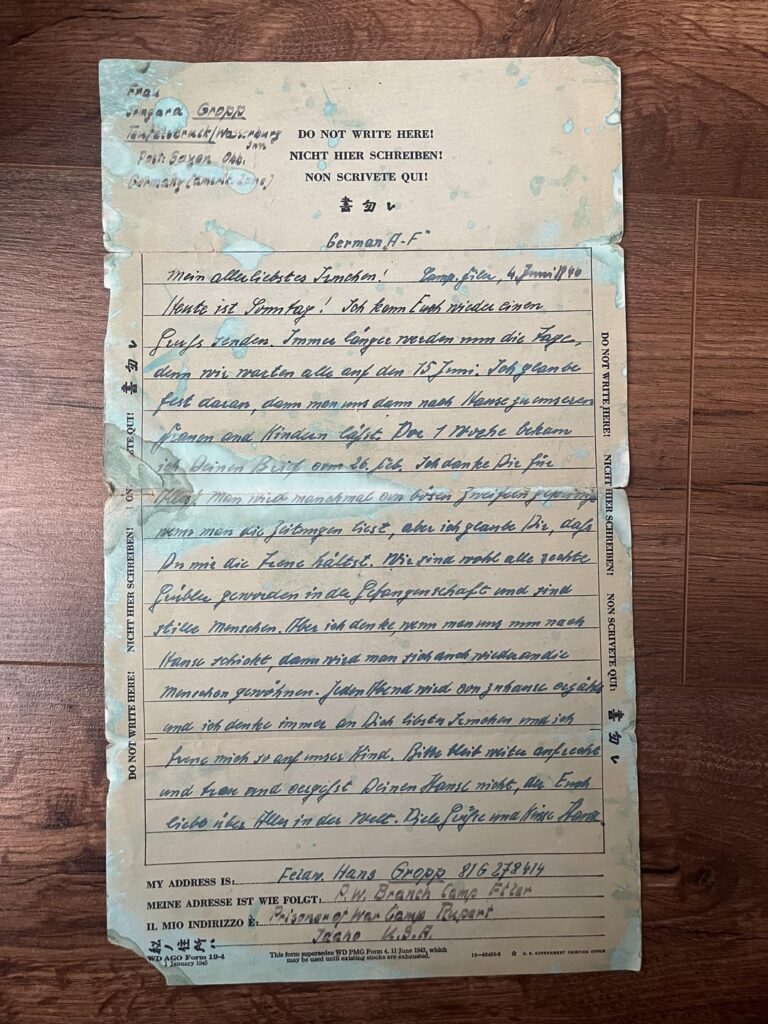 Frau
Irmgard Gropp
Teufelsbruck/Wasserburg
Inn
Post: Soyen Obb.
Germany (amerik. Zone)
DO NOT WRITE HERE!
NICHT HIER SCHREIBEN!
NON SCRIVETE QUI!
書勿レ
German A-F"
Mein allerliebstes Irmchen! Camp. Filer, 4. Juni
Heute ist Sonntag! Ich kann Euch wieder einen
Gruß senden. Immer länger werden nun die Tage,
denn wir warten alle auf den 15 Juni. Ich glaube
fest daran, dann man uns dann nach Hause zu unseren
Frauen und Kindern läßt. Vor 1 Woche bekam
ich Deinen Brief vom 26. Feb. Ich danke Dir für
Alles! Man wird manchmal von bösen Zweifeln
wenn man die Zeitungen liest, aber ich glaube Dir, daß
Du mir die Treue hältst. Wir sind wohl alle rechte
Grübler geworden in der Gefangenschaft und sind
stille Menschen. Aber ich denke, wenn man uns nun nach
Hause schickt, dann wird man sich auch wieder an die
Menschen gewöhnen. Jeden Abend wird von zuhause erzählt
und ich denke immer an Dich liebstes Irmchen und ich
freue mich so auf unser Kind. Bitte bleib weiter aufrecht
und treu und vergißt Deinen Hanse nicht, der Euch
liebt über Alles in der Welt. Viele Grüße und Küsse Hans
DO NOT WRITE HERE! NICHT HIER SCHREIBEN! NON SCRIVETE QUI! 書勿レ
DO NOT WRITE HERE! NICHT HIER SCHREIBEN! NON SCRIVETE QUI! 書勿レ
MY ADDRESS IS: Feldw. Hans Gropp 81G 278414
MEINE ADRESSE IST WIE FOLGT: P.W. Branch Camp Filer
IL MIO INDIRIZZO È: Prisoner of War Camp Rupert
私ノ住所: Idaho U.S.A.
WD AGO Form 19-4
1 January 1945
This form supersedes WD PMG Form 4, 11 June 1943, which
may be used until existing stocks are exhausted.
U. S. GOVERNMENT PRINTING OFFICE